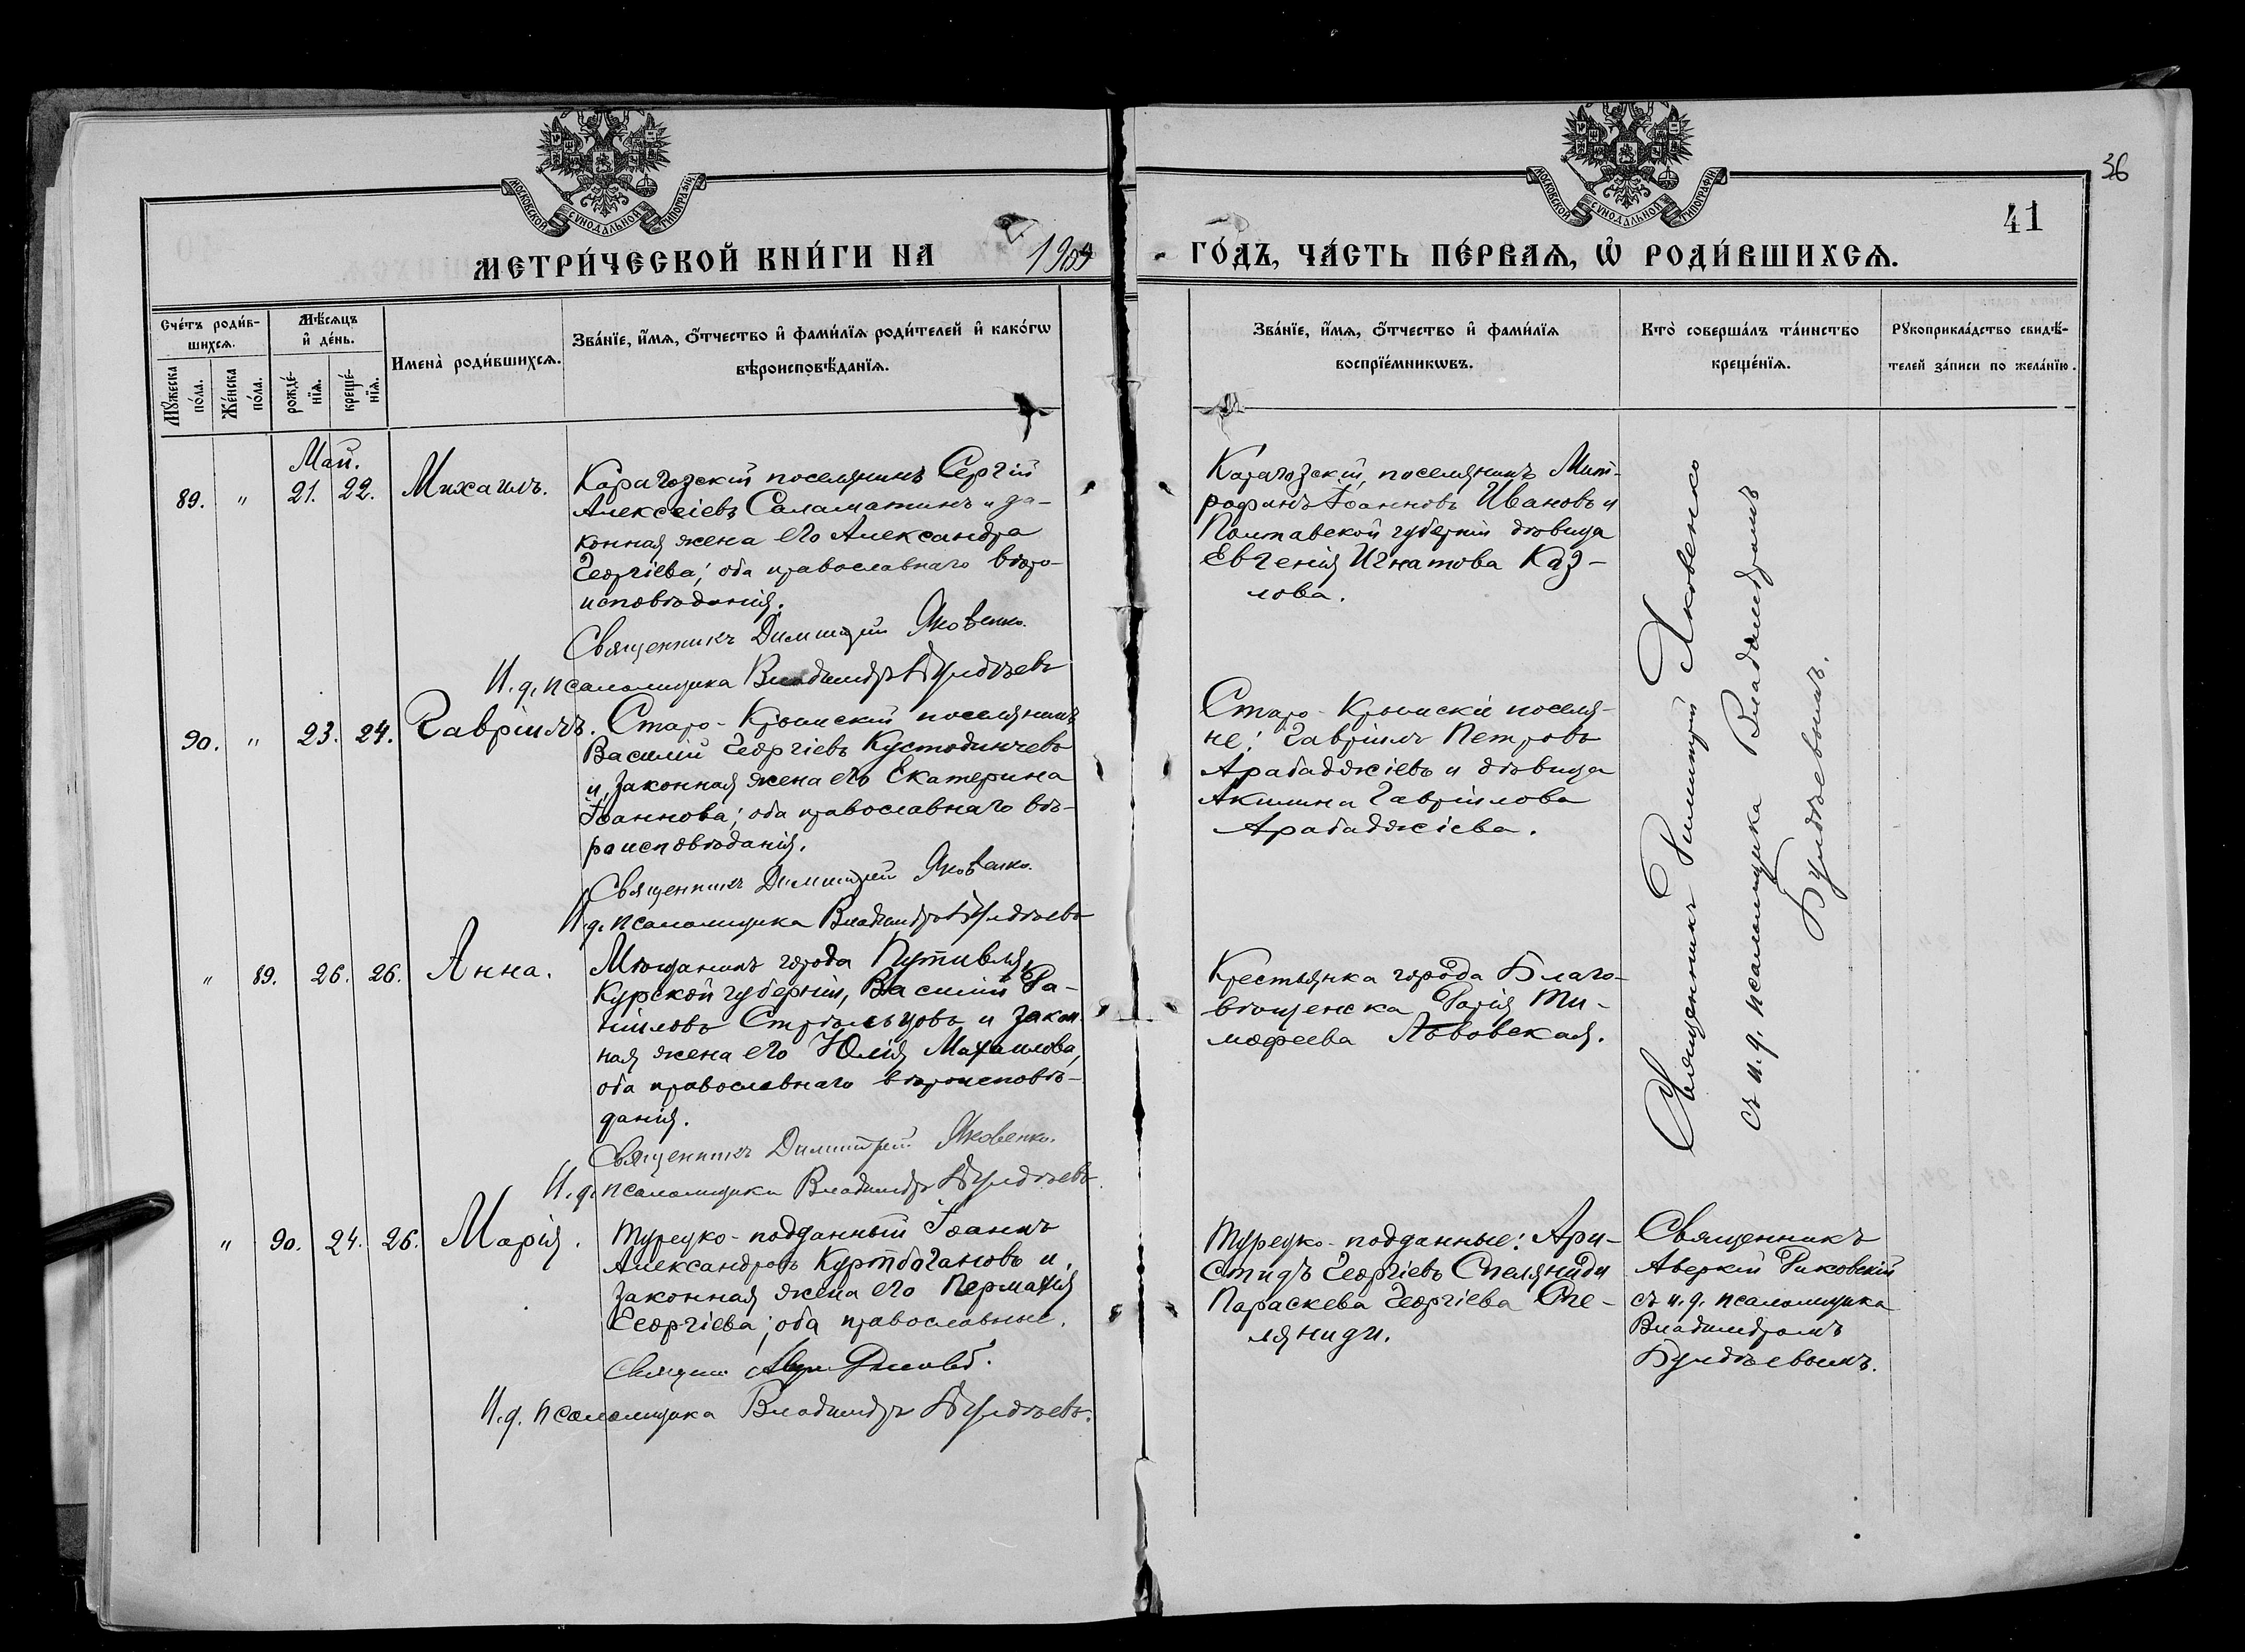 36
41
МОСКОВСКОЙ СУНОДАЛЬНОЙ ТИПОГРАФІИ
МОСКОВСКОЙ СУНОДАЛЬНОЙ ТИПОГРАФІИ
МЕТРИ́ЧЕСКОЙ КНИ́ГИ НА 1909
ГО́ДЪ, ЧА́СТЬ ПЕ́РВАѦ, Ѡ҆ РОДИ́ВШИХСѦ.
Сче́тъ роди́в-
шихсѧ.
Мꙋ́жеска по́ла.
Же́нска по́ла.
Мѣ́сѧцъ
и҆ де́нь.
рожде́-
нїѧ.
креще́-
нїѧ.
Имена̀ роди́вшихсѧ.
Зва́нїе, и҆́мѧ, ѻ҆́тчество и҆ фами́лїѧ роди́телей и҆ како́гѡ
вѣроисповѣ́данїѧ.
Зва́нїе, и҆́мѧ, ѻ҆́тчество и҆ фами́лїѧ
воспрїе́мникѡвъ.
Кто̀ соверша́лъ та́инство
креще́нїѧ.
Рꙋкоприкла́дство свидѣ́-
телей за́писи по жела́нїю.
Май.
89. " 21. 22. Михаилъ.
Карагозскій поселянинъ Сергій
Алексѣевъ Саламатинъ и за-
конная жена его Александра
Георгіева; оба православнаго вѣро-
исповѣданія.
Священникъ Димитрій Яковенко.
И. д. псаломщика Владимиръ Булдѣевъ
Карагозскій поселянинъ Мит-
рофанъ Іоанновъ Ивановъ и
Полтавской губерніи дѣвица
Евгенія Игнатова Каз-
лова.
90. " 23. 24. Гавріилъ.
Старо-Крымскій поселянинъ
Василій Георгіевъ Кустодинчевъ
и законная жена его Екатерина
Іоаннова; оба православнаго вѣ-
роисповѣданія.
Священникъ Димитрій Яковенко.
И. д. псаломщика Владимиръ Булдѣевъ
Старо-Крымскіе поселя-
не: Гавріилъ Петровъ
Арабаджіевъ и дѣвица
Акилина Гавріилова
Арабаджіева.
" 89. 26. 26. Анна.
Мѣщанинъ города Путивля,
Курской губерніи, Василій Да-
ніиловъ Стрѣльцовъ и закон-
ная жена его Юлія Михаилова,
оба православнаго вѣроисповѣ-
данія.
Священникъ Димитрій Яковенко.
И. д. псаломщика Владимиръ Булдѣевъ.
Крестьянка города Благо-
вѣщенска Дарія Ти-
мофеева Львовская.
Священникъ Димитрій Яковенко
съ и. д. псаломщика Владимиромъ
Булдѣевымъ.
" 90. 24. 26. Марія.
Турецко-подданный Іоаннъ
Александровъ Куртбогановъ и
законная жена его
Георгіева; оба православные.
И. д. псаломщика Владимиръ Булдѣевъ.
Турецко-подданные: Ари-
стидъ Георгіевъ Спеляниди
Параскева Георгіева Спе-
ляниди.
Священникъ
Аверкій Диковскій
съ и. д. псаломщика
Владимиромъ
Булдѣевымъ.